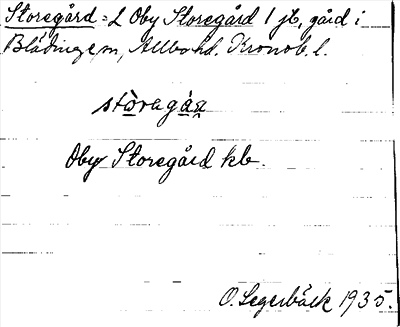 Storegård = L Oby Storegård 1 jb, gård i
Blädinge sn, Allbo hd. Kronob. l.
stòragáꝛ
Oby Storegård kb.
O. Segerbäck 1935.